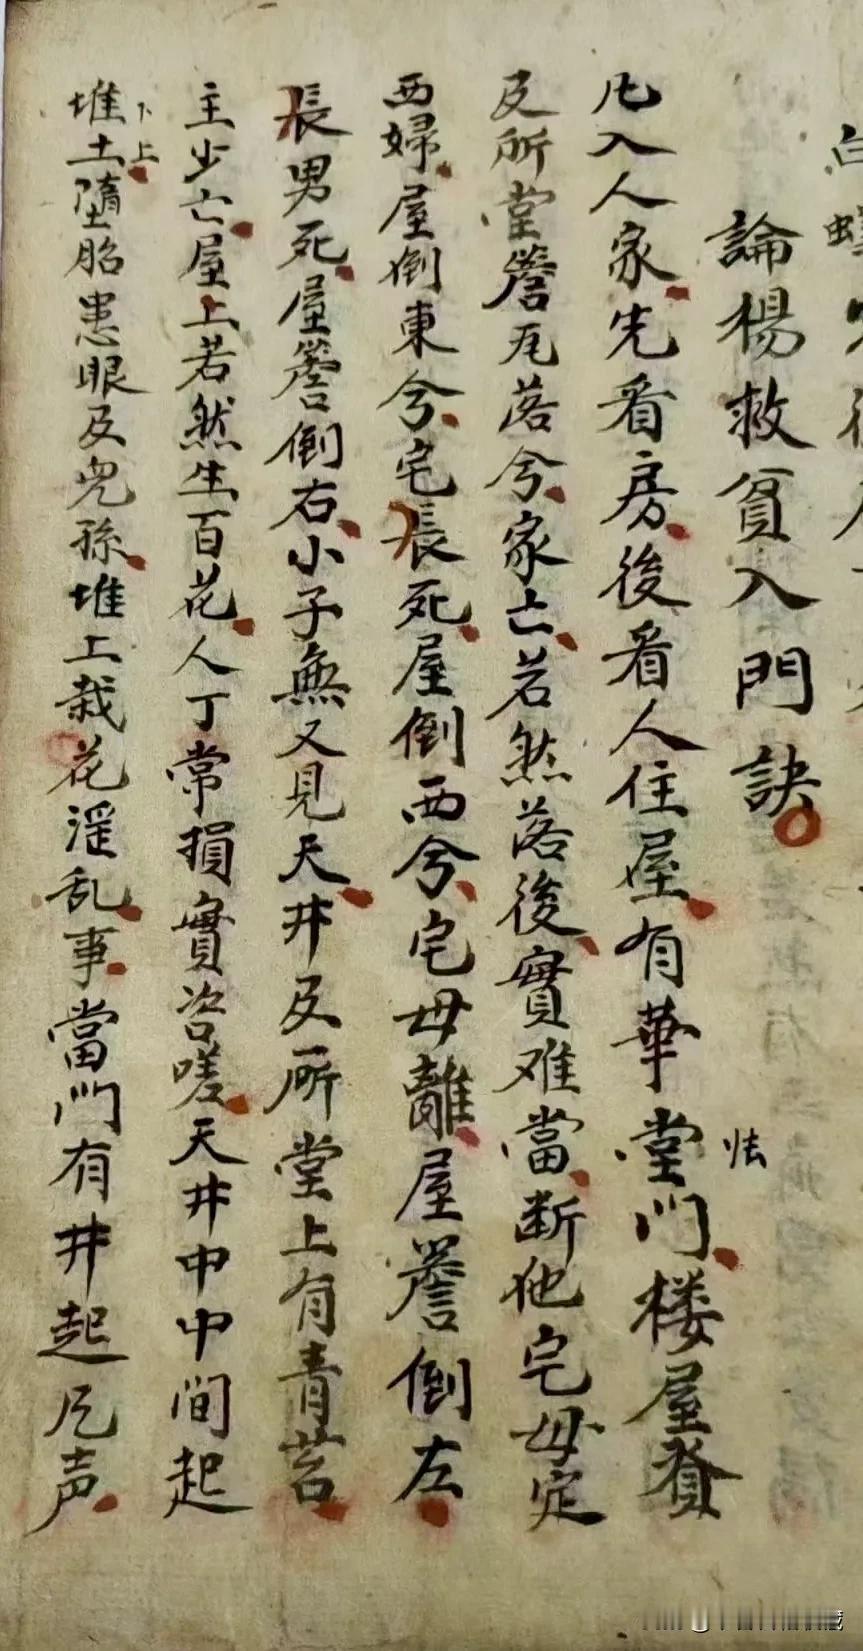 論楊救貧入門訣
凡入人家先看房後看人住屋有華堂門楼屋脊
怯
及所堂簷瓦落兮家亡若然落後實难當断他宅母定
西婦屋倒東兮宅長死屋倒西兮宅母離屋簷倒左
長男死屋簷倒右小子無又見天井及所堂上有青苔
主少亡屋上若然生百花人丁常損實咨嗟天井中中间起
下上
堆土墮胎患眼及兒孫堆上栽花淫乱事當门有井起凡声